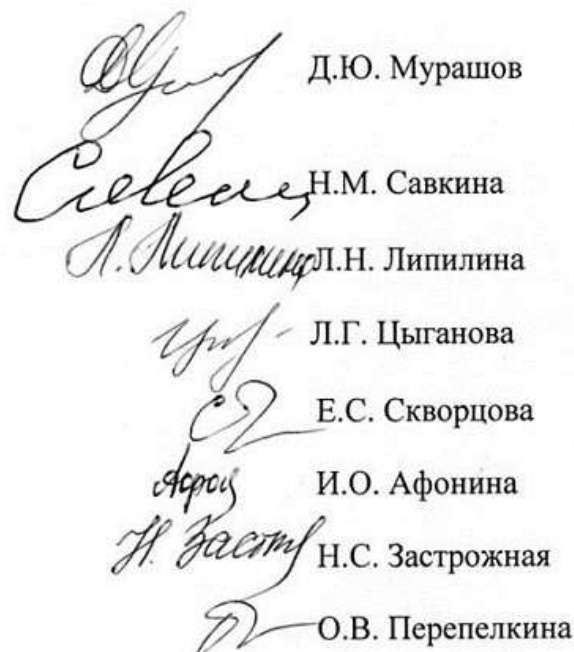 Д.Ю. Мурашов
Н.М. Савкина
Л. Липилина Л.Н. Липилина
Л.Г. Цыганова
Е.С. Скворцова
И.О. Афонина
Н. Заст Н.С. Застрожная
О.В. Перепелкина